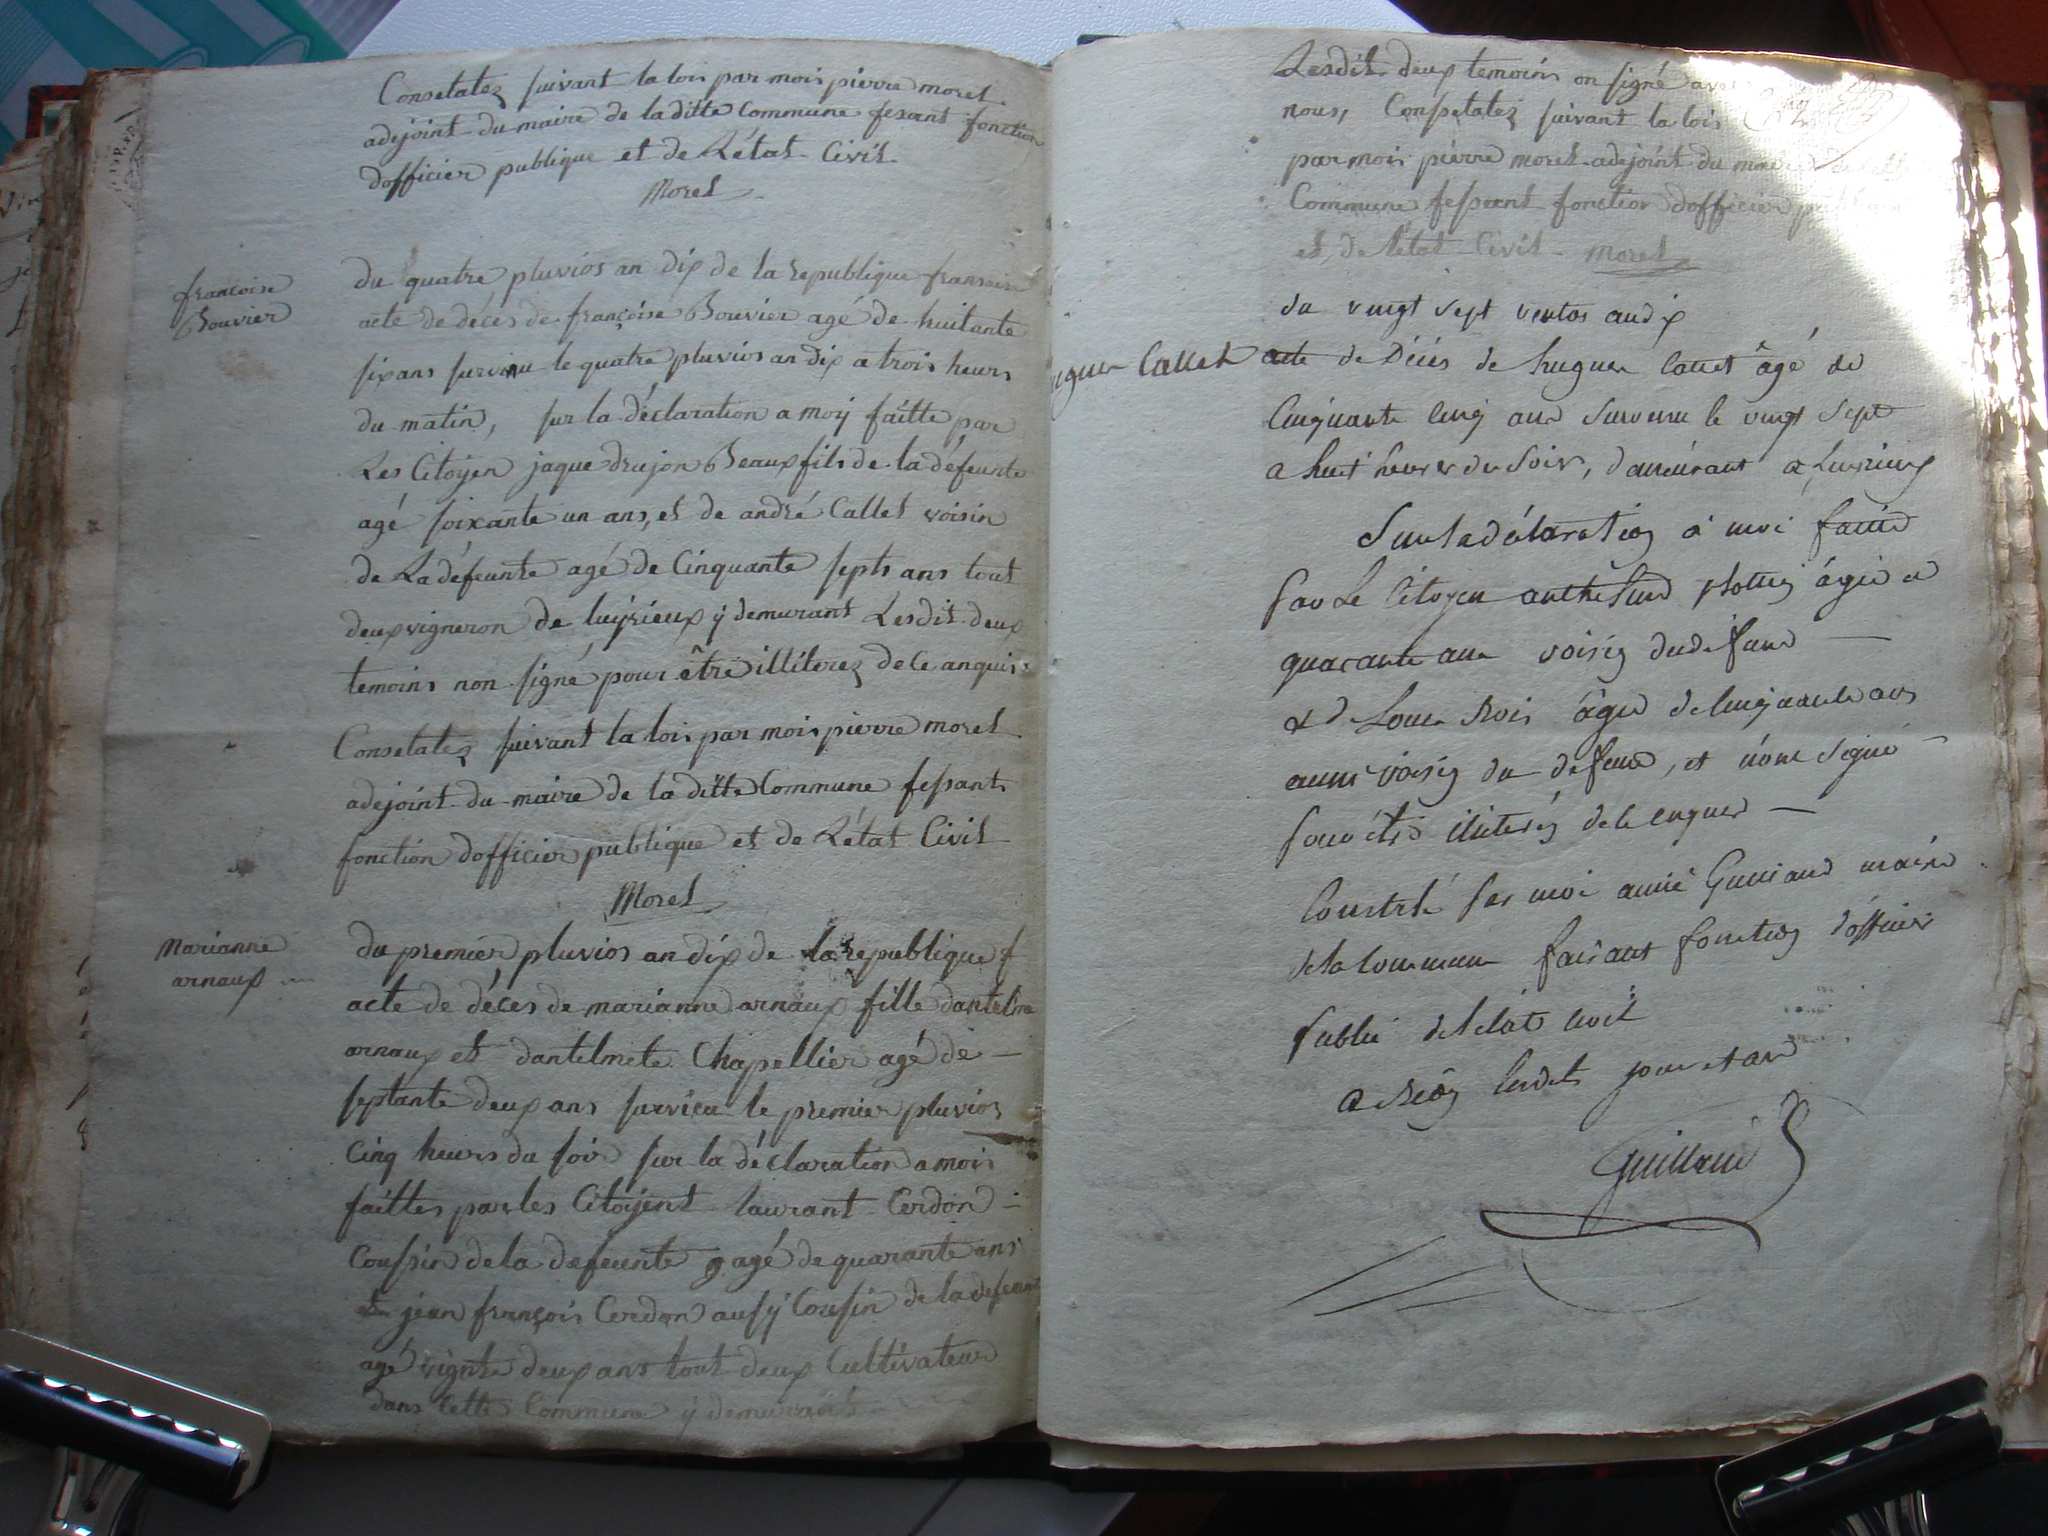 Consetatez suivant la lois par mois pierre morel
adejoint du maire de laditte Commune fesant fonction
dofficier publique et de Létat Civil
Morel
françoise
Bouvier
du quatre pluvios an dix de la republique fransaise
acte de déces de françoise Bouvier agé de huitante
six ans survenu le quatre pluvios an dix a trois heurs
du matin, sur la déclaration a moy faitte par
Les Citoyen jaque drujon Beaux fils de la défeunte
agé soixante un ans, et de andré Callet voisin
de La défeunte agé de Cinquante septs ans tout
deux vigneron de luyrieux y demurant Lesdit deux
temoins non signé pour être illiterez de ce anquis
Consetatez suivant la lois par mois pierre morel
adejoint du maire de la ditte Commune fessant
fonction dofficier publique et de Létat Civil
Morel
Marianne
arnaux
du premier pluvios an dix de la republique f
acte de déces de marianne arnaux fille dantelme
arnaux et dantelmete Chapellier agé de
septante deux ans survieu le premier pluvios
Cinq heurs du soir sur la déclaration a mois
faittes par les Citoyent laurant Cerdon
Coussin de la defeunte agé de quarante ans
jean françois Cerdon aussy Cousin de la defeunte
agé vignte deux ans tout deux Cultivateur
dans Cette Commune y demurant
Lesdit deux temoins on signé avec
nous, Conssetatez suivant la lois
par mois pierre morel adejoint du maire
Commune fessant fonction dofficier publique
et de létat Civil Morel
du vingt sept ventos an dix
Callet acte de Décés de hugue Callet âgé de
Cinquante cinq ans survenu le vingt sept
a huit heures du soir, demeurant a Luirieux
Sur la déclaration à moi faitte
par Le Citoyen anthelme âgé de
quarante ans voisin du defunt
et de Louis Rois âgé de cinquante ans
aussi voisin du defunt, et n'ont signé
pour être illiterés de ce enquis
Constaté par moi aimé Guilland maire
de la commune faisant fonction d'officier
public de l'état civil
a Béon lesdits jour et an
Guilland